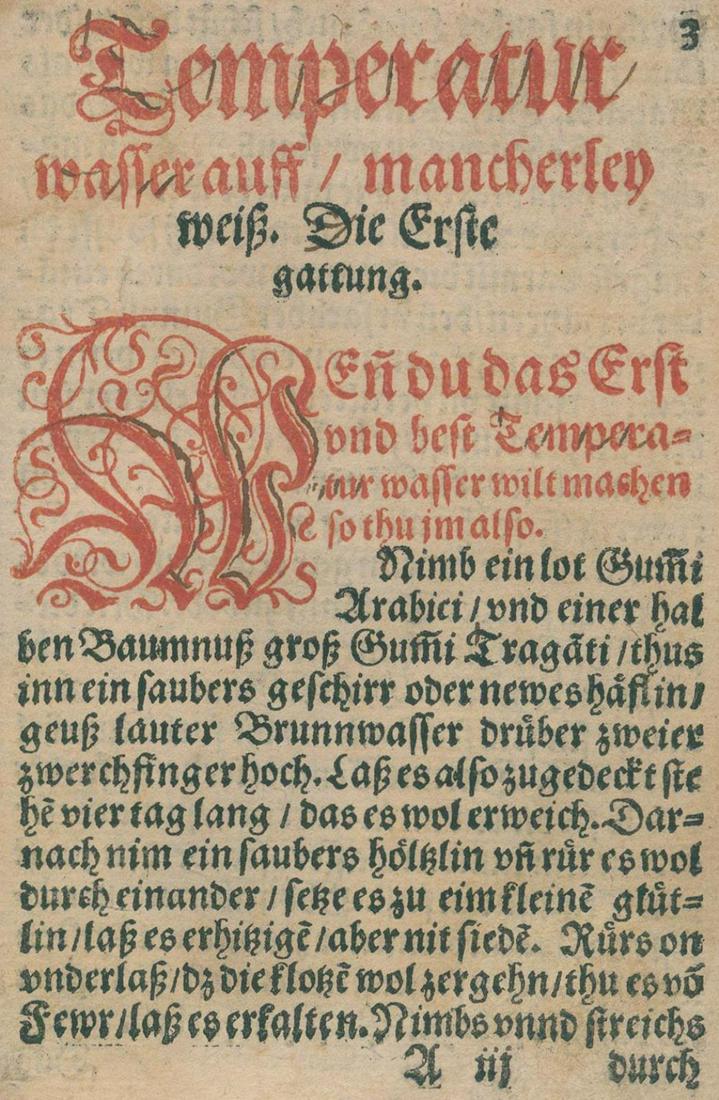 3
Temperatur
wasser auff / mancherley
weiß. Die Erste
gattung.
WEñ du das Erst
vnd best Tempera=
tur wasser wilt machen
so thu jm also.
Nimb ein lot Gum̃i
Arabici / vnd einer hal
ben Baumnuß groß Gum̃i Tragãti / thus
inn ein saubers geschirr oder newes häflin /
geuß lauter Brunnwasser drüber zweier
zwerchfinger hoch. Laß es also zugedeckt ste
hẽ vier tag lang / das es wol erweich. Dar=
nach nim ein saubers höltzlin vñ rür es wol
durch einander / setze es zu eim kleinẽ glüt=
lin / laß es erhitzigẽ / aber nit siedẽ. Rürs on
vnderlaß / dz die klotzẽ wol zergehn / thu es võ
Fewr / laß es erkalten. Nimbs vnnd streichs
A iij durch